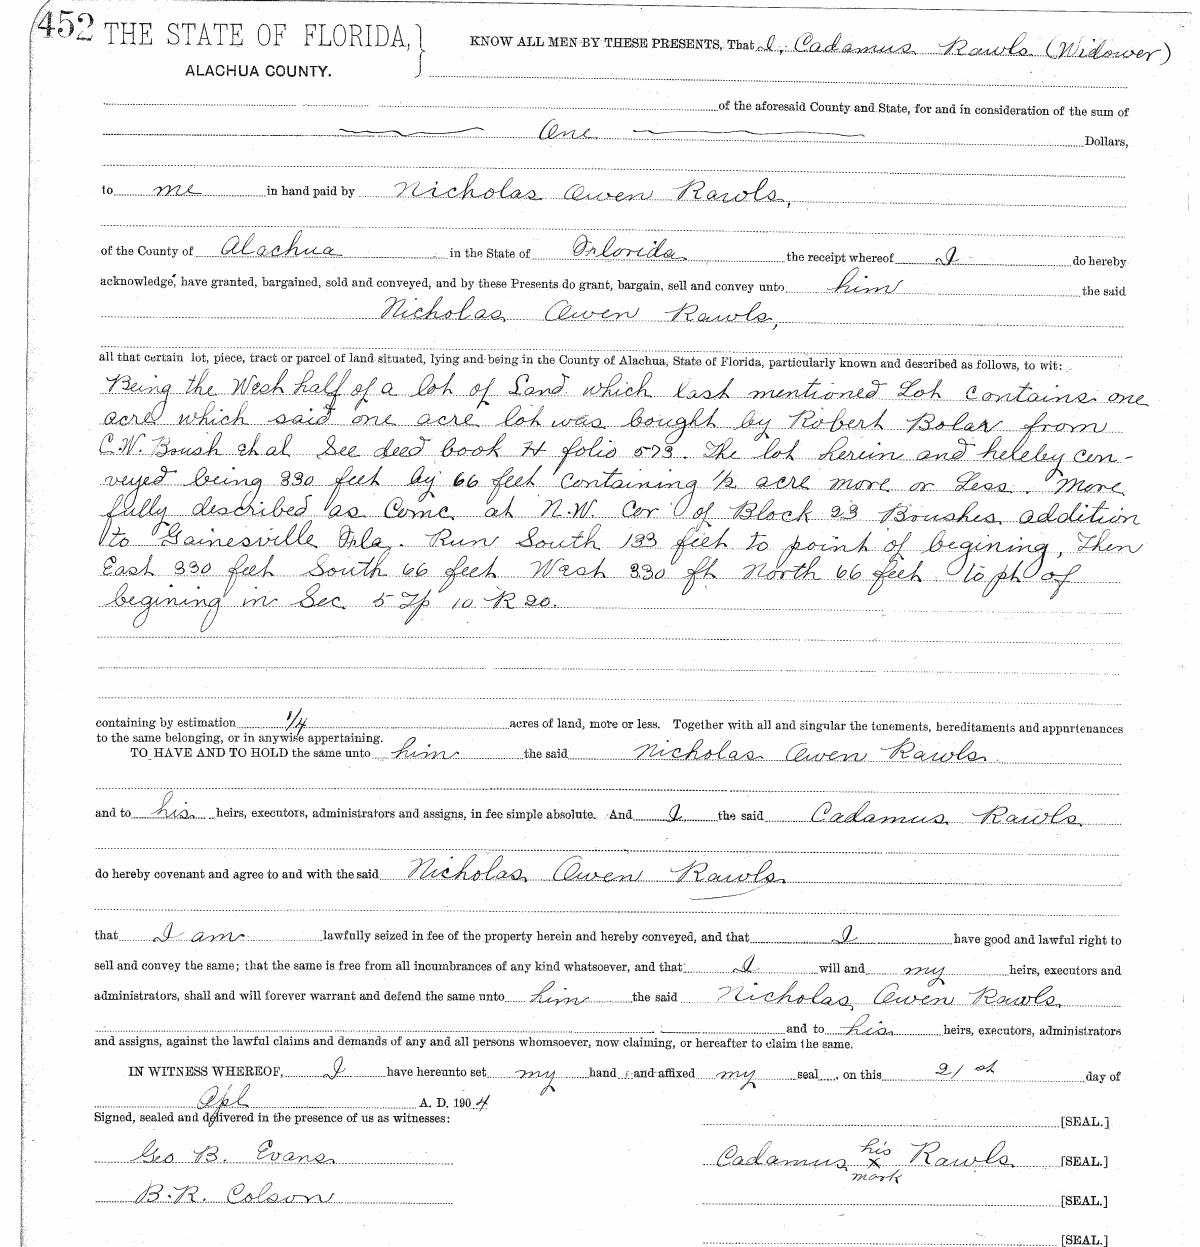 452 THE STATE OF FLORIDA, } KNOW ALL MEN BY THESE PRESENTS, That I, Cadamus Rawls (Widower)
ALACHUA COUNTY.
of the aforesaid County and State, for and in consideration of the sum of
One Dollars,
to me in hand paid by Nicholas Owen Rawls,
of the County of Alachua in the State of Florida the receipt whereof I do hereby
acknowledge, have granted, bargained, sold and conveyed, and by these Presents do grant, bargain, sell and convey unto him the said
Nicholas Owen Rawls,
all that certain lot, piece, tract or parcel of land situated, lying and being in the County of Alachua, State of Florida, particularly known and described as follows, to wit:
Being the West half of a lot of Land which last mentioned Lot contains one
acre which said one acre lot was bought by Robert Bolar from
C.W. Brush et al See deed book H folio 573. The lot herein and hereby con-
veyed being 330 feet by 66 feet containing 1/2 acre more or Less. More
fully described as Comc at N.W. Cor of Block 33 Brushes addition
to Gainesville Fla. Run South 133 feet to point of begining, Then
East 330 feet South 66 feet West 330 ft North 66 feet to pt of
begining in Sec 5 Tp 10 R 20.
containing by estimation 1/4 acres of land, more or less. Together with all and singular the tenements, hereditaments and appurtenances
to the same belonging, or in anywise appertaining.
TO HAVE AND TO HOLD the same unto him the said Nicholas Owen Rawls
and to his heirs, executors, administrators and assigns, in fee simple absolute. And I the said Cadamus Rawls
do hereby covenant and agree to and with the said Nicholas Owen Rawls
that I am lawfully seized in fee of the property herein and hereby conveyed, and that I have good and lawful right to
sell and convey the same; that the same is free from all incumbrances of any kind whatsoever, and that I will and my heirs, executors and
administrators, shall and will forever warrant and defend the same unto him the said Nicholas Owen Rawls
and to his heirs, executors, administrators
and assigns, against the lawful claims and demands of any and all persons whomsoever, now claiming, or hereafter to claim the same.
IN WITNESS WHEREOF, I have hereunto set my hand and affixed my seal, on this 21st day of
Apl A. D. 1904
Signed, sealed and delivered in the presence of us as witnesses: [SEAL.]
Geo B. Evans Cadamus his x mark Rawls [SEAL.]
B.R. Colson [SEAL.]
[SEAL.]